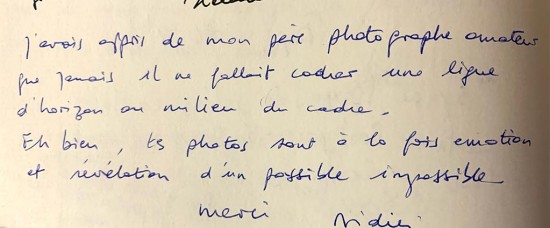 j'avais appris de mon père photographe amateur
que jamais il ne fallait cadrer une ligne
d'horizon au milieu du cadre.
Eh bien, tes photos sont à la fois emotion
et révélation d'un possible impossible
merci Didier